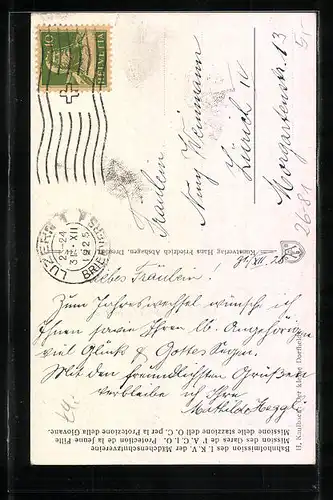 10
HELVETIA
LUZERN 1
31. XII
BRIEFVERS.
Fräulein
Zürich IV
Morgartenstr. 13
5,-
2681
Kunstverlag Hans Friedrich Abshagen, Dresden
31/XII. 25
Liebes Fräulein!
Zum Jahreswechsel wünsche ich
Ihnen sowie Ihren lb. Angehörigen
viel Glück & Gottes Segen.
Mit den freundlichsten Grüßen
verbleibe ich Ihre
Mathilde
H. Kaulbach: Der kleine
Bahnhofmission des I. K. V. der Mädchenschutzvereine
Mission des Gares de l'A. C. I. O. Protection de la Jeune Fille
Missione delle stazione dell O. C. per la Protezione della Giovane.